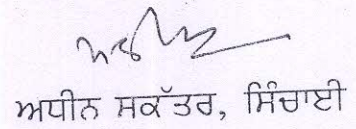 ਅਧੀਨ ਸਕੱਤਰ, ਸਿੰਚਾਈ